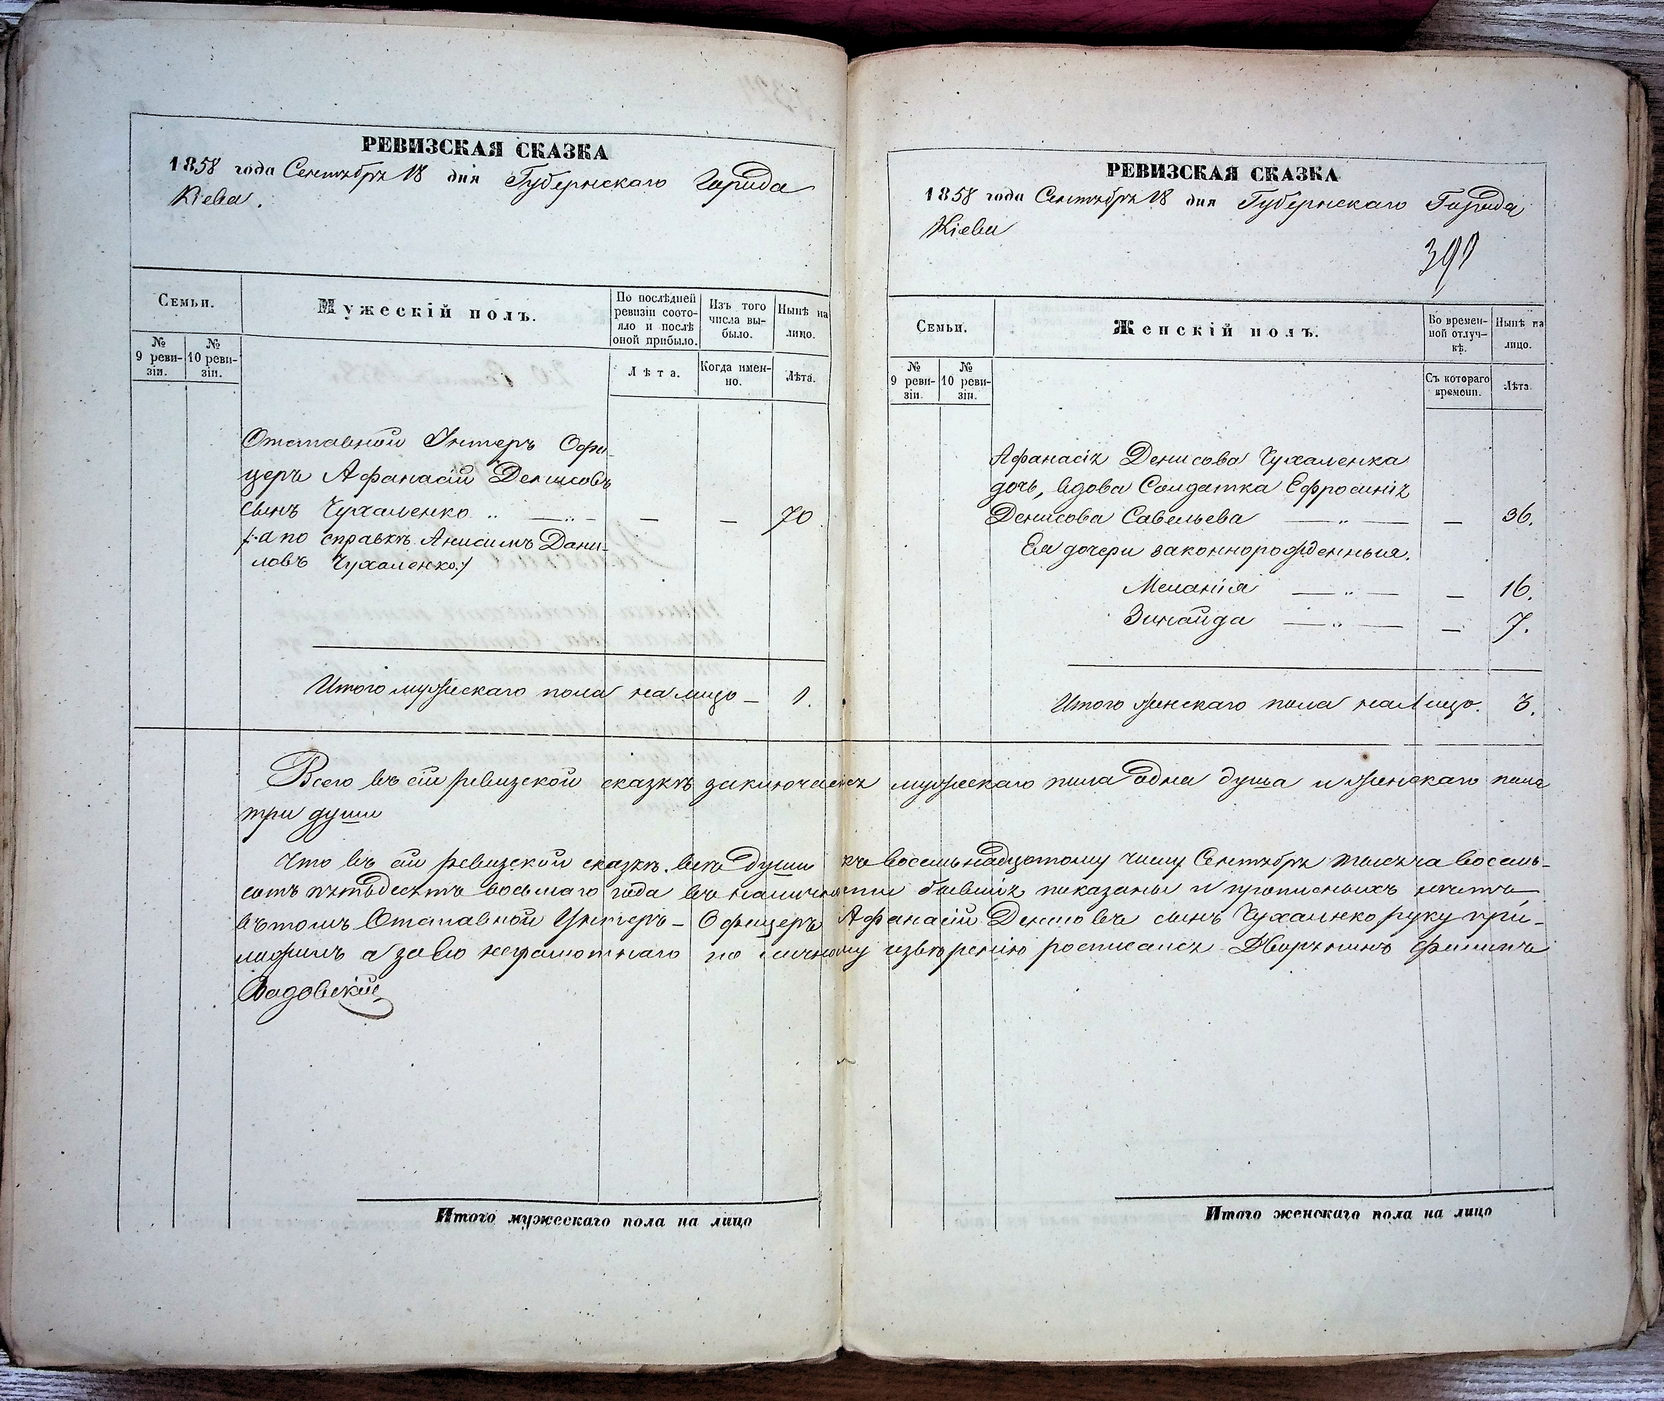 РЕВИЗСКАЯ СКАЗКА
1858 года Сентября 18 дня Губернскаго Города
Кіева.
Семьи.
Мужескій полъ.
По послѣдней ревизіи состояло и послѣ оной прибыло.
Изъ того числа выбыло.
Нынѣ на лицо.
№ 9 ревизіи.
№ 10 ревизіи.
Лѣта.
Когда именно.
Лѣта.
Отставной Унтеръ Офи-
церъ Афанасій Денисовъ
сынъ Чухаленко „ — „ — — — 70
/:а по справкѣ Анисимъ Дани-
ловъ Чухаленко:/
Итого мужескаго пола на лицо — 1.
РЕВИЗСКАЯ СКАЗКА
1858 года Сентября 18 дня Губернскаго Города
Кіева
391
Семьи.
Женскій полъ.
Во временной отлучкѣ.
Нынѣ на лицо.
№ 9 ревизіи.
№ 10 ревизіи.
Съ котораго времени.
Лѣта.
Афанасія Денисова Чухаленка
дочь, вдова Солдатка Ефросинія
Денисова Савельева — „ — — 36.
Ея дочери законнорожденныя.
Меланія — „ — — 16.
Зинаида — „ — — 7.
Итого женскаго пола на лицо. 3.
Всего въ сей ревизской сказкѣ заключается мужескаго пола одна душа и женскаго пола
три души
Что въ сей ревизской сказкѣ всѣ души къ восемьнадцатому числу Сентября тысяча восемь-
сотъ пятьдесятъ восьмаго года въ наличности бывшія показаны и прописныхъ нѣтъ
въ томъ Отставной Унтеръ-Офицеръ Афанасій Денисовъ сынъ Чухаленко руку при-
ложилъ а за его неграмотнаго по личному извѣренію росписался Дворянинъ Филипъ
Итого мужескаго пола на лицо
Итого женскаго пола на лицо